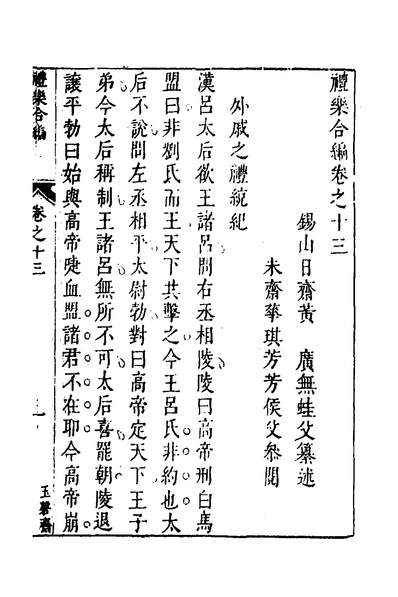 禮樂合編卷之十三
錫山日齋黃　廣無蛙父纂述
未齋華琪芳芳侯父叅閱
外戚之禮統紀
漢呂太后欲王諸呂問右丞相陵陵曰高帝刑白馬
盟曰非劉氏而王天下共擊之今王呂氏非約也太
后不說問左丞相平太尉勃對曰高帝定天下王子
弟今太后稱制王諸呂無所不可太后喜罷朝陵退
讓平勃曰始與高帝啑血盟諸君不在耶今高帝崩
禮樂合編
卷之十三
一
玉磬齋